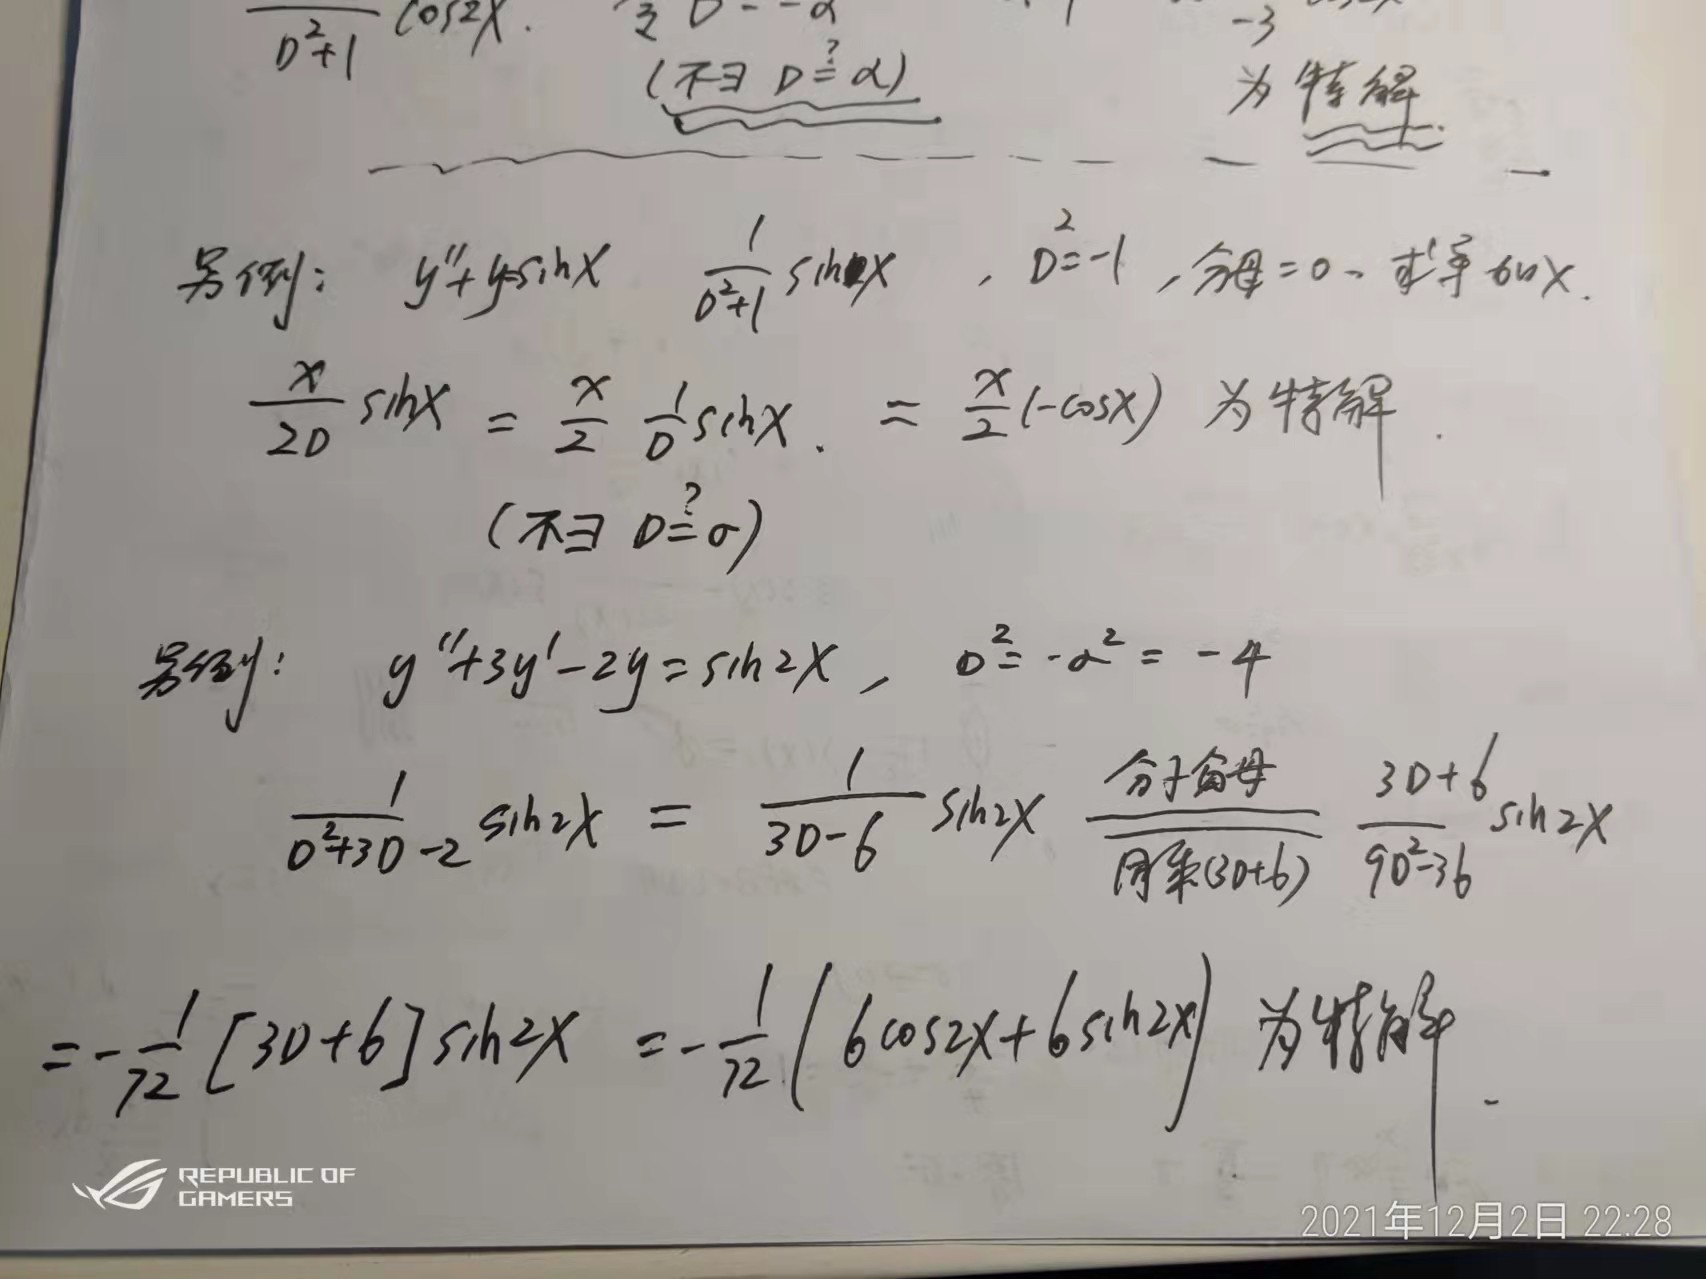 1/(D²+1) cos2x.
-3
(不彐 D ?= α)
为特解
另例: y″+y=sinx 1/(D²+1) sinx , D²=-1 , 分母=0、求导
x/(2D) sinx = x/2 1/D sinx. = x/2 (-cosx) 为特解.
(不彐 D ?= σ)
另例: y″+3y′-2y=sin2x , D²=-α²=-4
1/(D²+3D-2) sin2x = 1/(3D-6) sin2x 分子分母同乘(3D+6) (3D+6)/(9D²-36) sin2x
=-1/72 [3D+6] sin2x =-1/72 (6cos2x+6sin2x) 为特解.
REPUBLIC OF
GAMERS
2021年12月2日 22:28